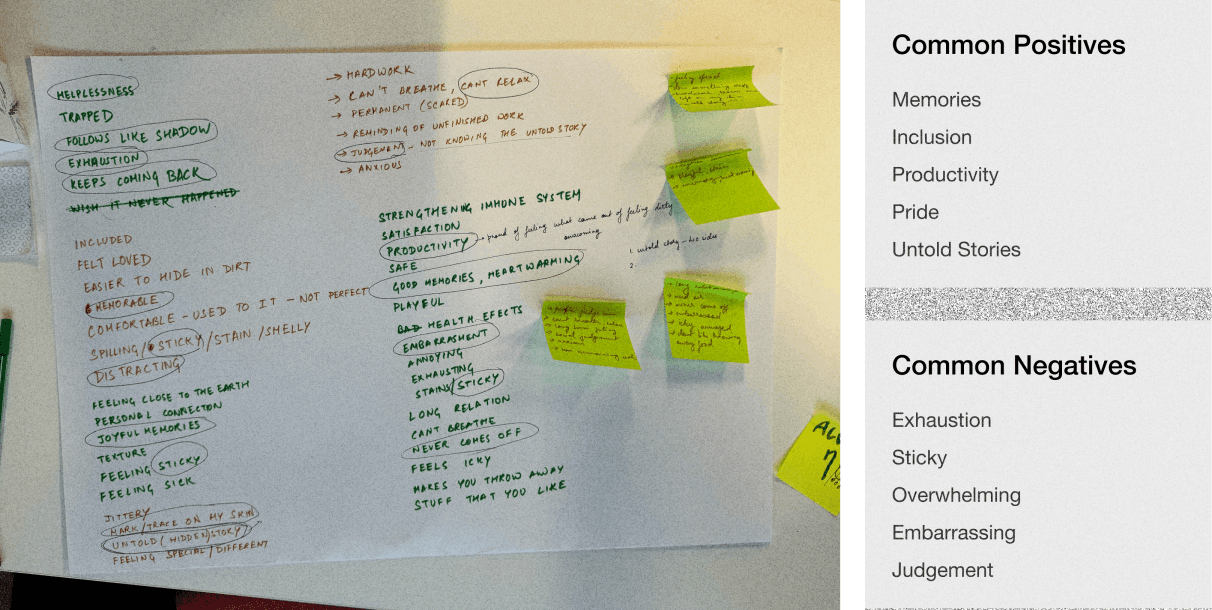 HELPLESSNESS
TRAPPED
FOLLOWS LIKE SHADOW
EXHAUSTION
KEEPS COMING BACK
WISH IT NEVER HAPPENED
INCLUDED
FELT LOVED
EASIER TO HIDE IN DIRT
MEMORABLE
COMFORTABLE - USED TO IT - NOT PERFECT
SPILLING/STICKY/STAIN/SMELLY
DISTRACTING
FEELING CLOSE TO THE EARTH
PERSONAL CONNECTON
JOYFUL MEMORIES
TEXTURE
FEELING STICKY
FEELING SICK
JITTERY
MARK/TRACE ON MY SKIN
UNTOLD (HIDDEN/STORY)
FEELING SPECIAL/DIFFERENT
→ HARDWORK
→ CAN'T BREATHE, CANT RELAX
→ PERMANENT (SCARED)
→ REMINDING OF UNFINISHED WORK
→ JUDGEMENT - NOT KNOWING THE UNTOLD STORY
→ ANXIOUS
STRENGTHENING IMMUNE SYSTEM
SATISFACTION
PRODUCTIVITY → proud of feeling what came out of feeling dirty
overcoming
SAFE
GOOD MEMORIES, HEARTWARMING
PLAYFUL
BAD HEALTH EFECTS
EMBARRASMENT
ANNOYING
EXHAUSTING
STAINS/STICKY
LONG RELATION
CANT BREATHE
NEVER COMES OFF
FEELS ICKY
MAKES YOU THROW AWAY
STUFF THAT YOU LIKE
1. untold story -
2.
never come off
embarrassed
Common Positives
Memories
Inclusion
Productivity
Pride
Untold Stories
Common Negatives
Exhaustion
Sticky
Overwhelming
Embarrassing
Judgement